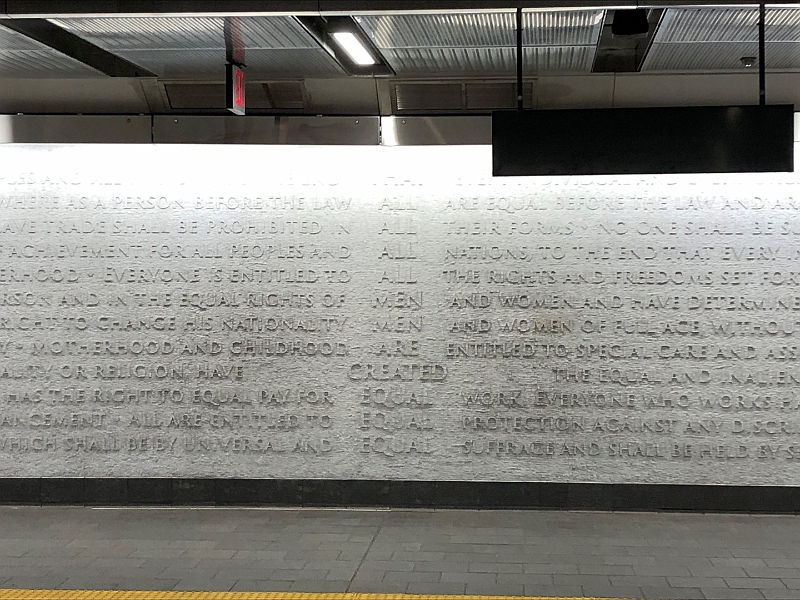 WHERE AS A PERSON BEFORE THE LAW ALL ARE EQUAL BEFORE THE LAW AND AR
AVE TRADE SHALL BE PROHIBITED IN ALL THEIR FORMS · NO ONE SHALL BE S
ACHIEVEMENT FOR ALL PEOPLES AND ALL NATIONS, TO THE END THAT EVERY
ERHOOD · EVERYONE IS ENTITLED TO ALL THE RIGHTS AND FREEDOMS SET FOR
RSON AND IN THE EQUAL RIGHTS OF MEN AND WOMEN AND HAVE DETERMINE
RIGHT TO CHANGE HIS NATIONALITY MEN AND WOMEN OF FULL AGE, WITHOUT
Y · MOTHERHOOD AND CHILDHOOD ARE ENTITLED TO SPECIAL CARE AND ASS
ALITY OR RELIGION, HAVE CREATED THE EQUAL AND INALIEN
HAS THE RIGHT TO EQUAL PAY FOR EQUAL WORK. EVERYONE WHO WORKS HA
ANCEMENT · ALL ARE ENTITLED TO EQUAL PROTECTION AGAINST ANY DISCR
WHICH SHALL BE BY UNIVERSAL AND EQUAL SUFFRAGE AND SHALL BE HELD BY SE